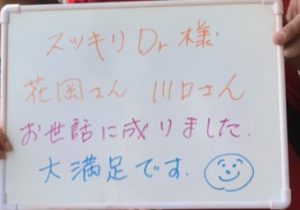 スッキリDr様
花岡さん 川口さん
お世話に成りました.
大満足です.